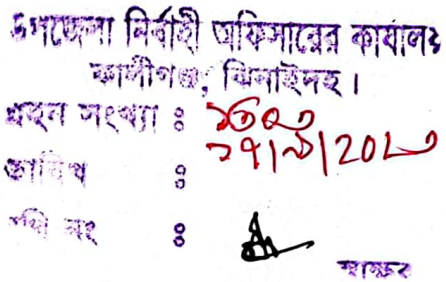 উপজেলা নির্বাহী অফিসারের কার্যালয়
কালীগঞ্জ, ঝিনাইদহ।
গ্রহন সংখ্যা :
তারিখ :
নথি নং :
স্বাক্ষর